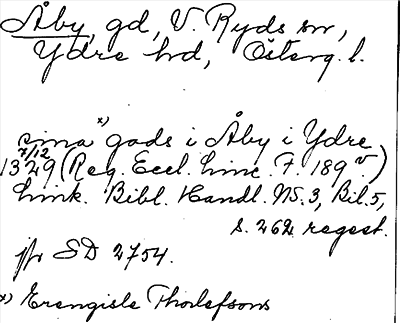 Åby, gd, V. Ryds sn,
Ydre hd, Österg. l.
sina x) gods i Åby i Ydre
7/12
1329 (Reg. Eccl. Linc. F. 189 v)
Link. Bibl. Handl. NS. 3, Bil. 5,
s. 262 regest.
jfr SD 2754.
x) Erengisle Thorlefsons